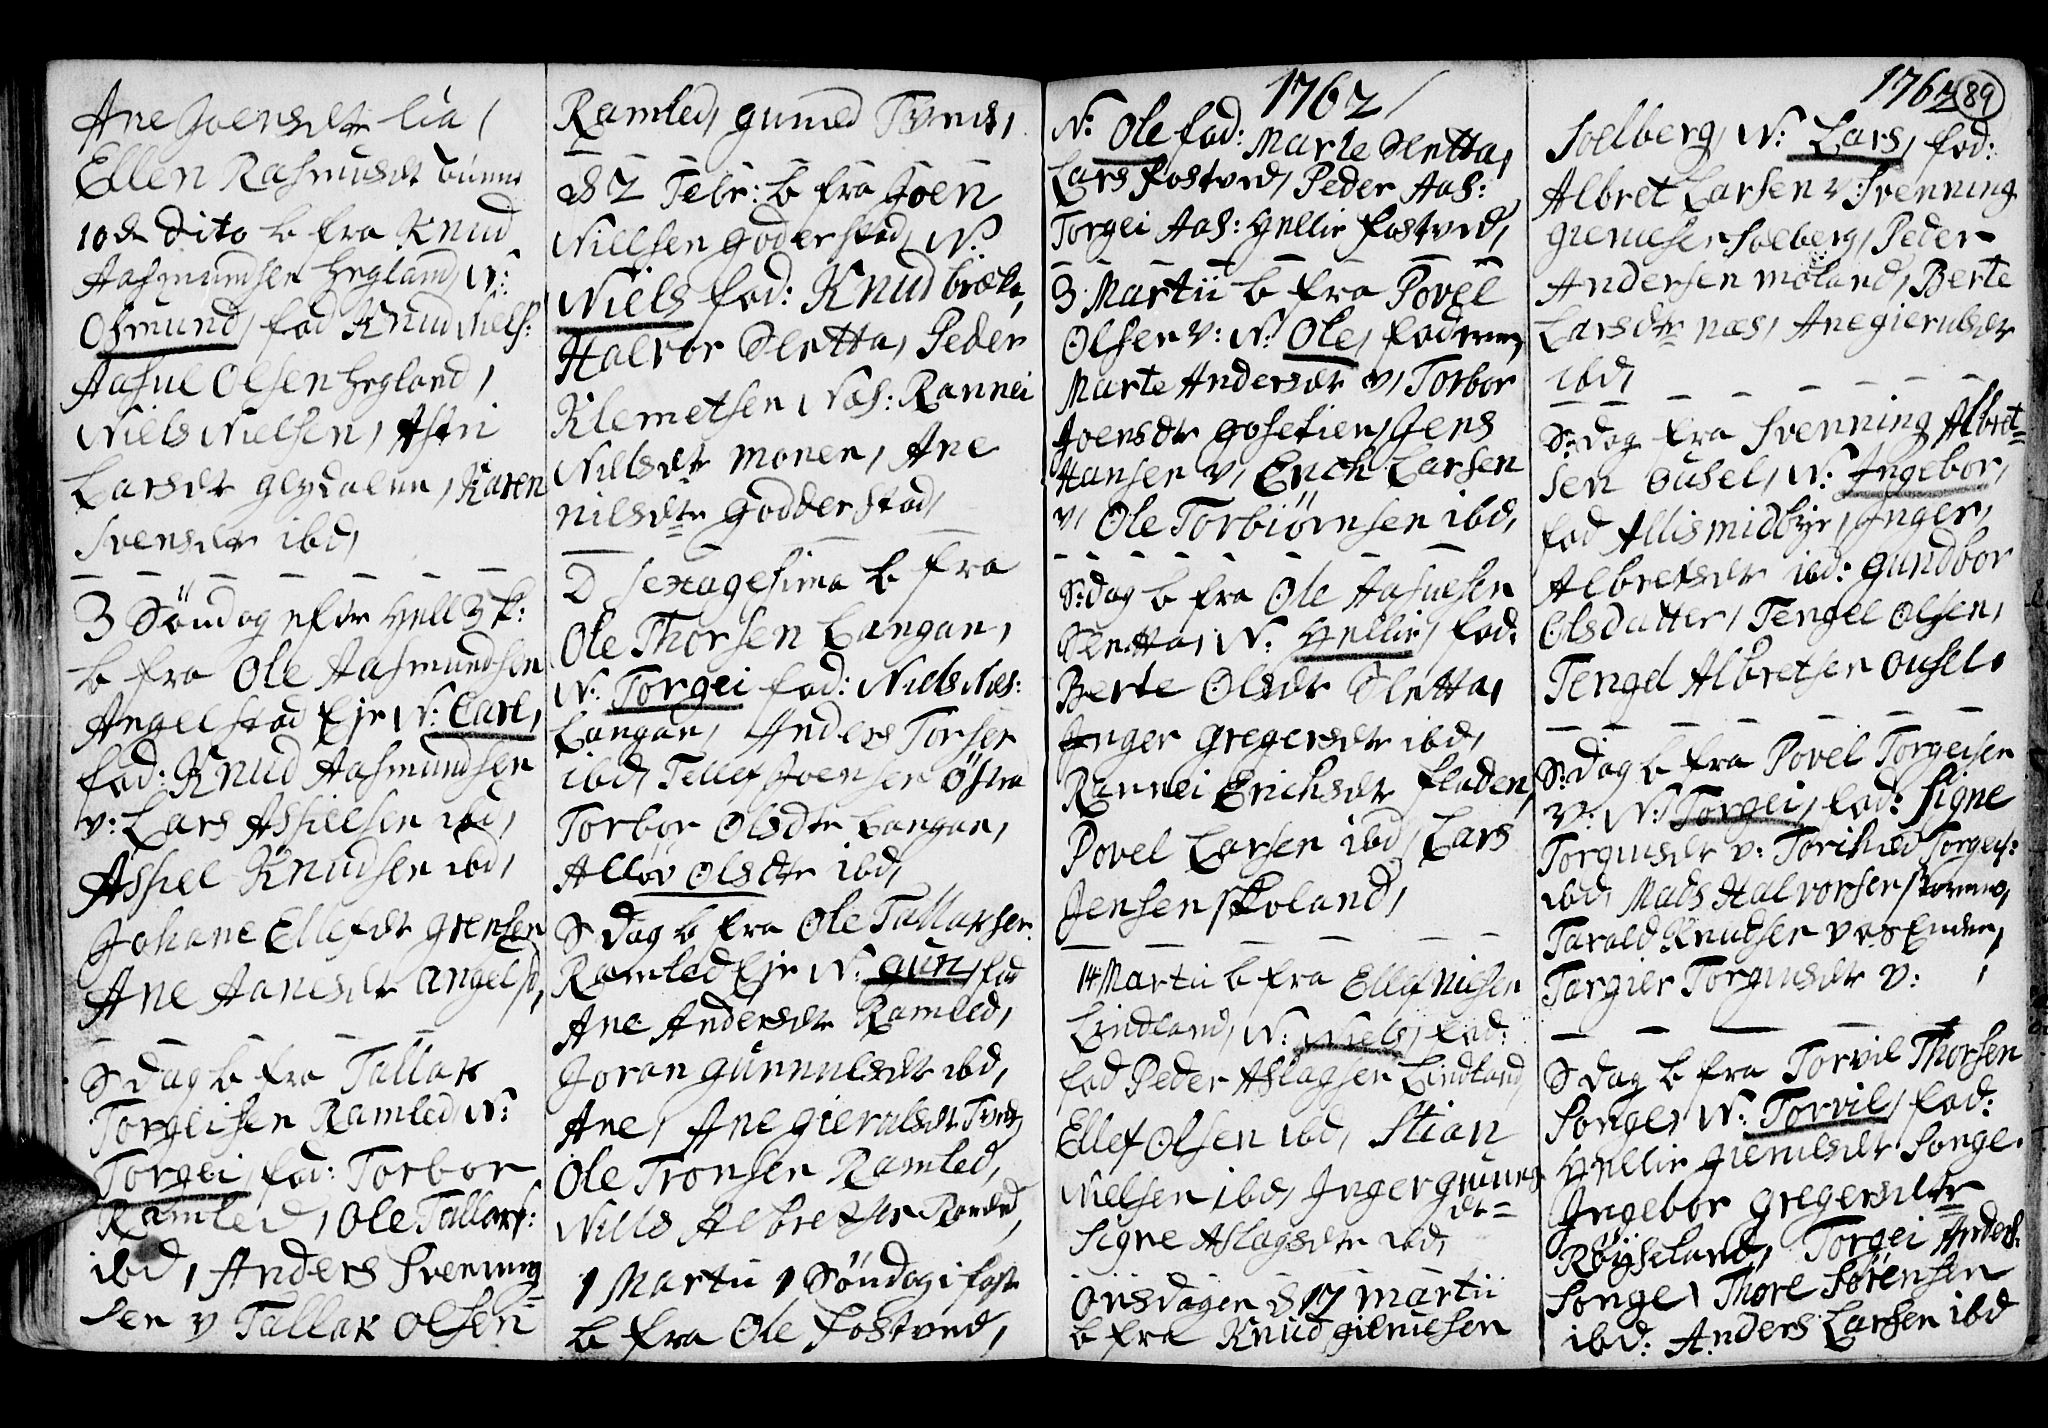 Ane Joensdtr Lia,
Ellen Rasmusdt
10de Dito b fra Knud
Aasmundsen Hegland, N:
Osmund, fad Knud Niels:
Aasul Olsen Hegland,
Niels Nielsen, Astri
Larsdtr Glydalen, Karen
Svensdtr ibd,
3 Söndag efter Hell 3 k:
b fra Ole Aasmundsen
Angelstad Eje N: Carl,
fad: Knud Aasmundsen
v: Lars Assielsen ibd,
Assiel Knudsen ibd,
Johane Ellefdtr Grensen
Ane Aanesdtr Angelsd,
S dag b fra Tallak
Torgeisen Ramled N:
Torgei, fad: Torbor
Ramled, Ole Tallaks:
ibd, Anders Svenning
sen v Tallak Olsen
Ramled, Guned Tveds,
d 2 Febr: b fra Joen
Nillsen Goderstad, N:
Niels fad: Knud bræka,
Halvor Sletta, Peder
Klemetsen Næs: Rannei
Nielsdtr Monen, Ane
Nilsdtr Godderstad,
D Sexagesima b fra
Ole Thorsen Langan,
N: Torgei fad: Niels Næs:
Langan, Anders Torsen
ibd, Tellef Joensen Östra
Torbor Olsdtr Langan,
Alløv Olsdtr ibd,
S dag b fra Ole Tallaksen
Ramled Eje N: Gun, fad
Ane Andersdtr Ramled,
Joran Gunnulsdtr ibd,
Ane, Ane Gierulsdt Tvedt
Ole Tronsen Ramled,
Nills Albretsen Ramled,
1 Martii 1 Söndag i faste
b fra Ole Fostved,
1762
N: Ole fad: Marte Sletta,
Lars Fostved, Peder Aas:
Torgei Aas: Hellie Fostved,
3 Martii b fra Povel
Olsen v: N: Ole, fadrene
Marte Andersdtr v, Torbor
Joensdtr Gosefien, Jens
Hansen v, Erich Larsen
v, Ole Torbiørnsen ibd,
S:dag b fra Ole Aasulsen
Sletta, N: Hellie, fad:
Berte Olsdtr Sletta,
Inger Gregersdtr ibd,
Rannei Erichsdtr Fladen,
Povel Larsen ibd, Lars
Jensen Skoland,
14 Martii b fra Ellef Nielsen
Lindland, N: Niels, fad:
fad Peder Aslagsen Lindland
Ellef Olsen ibd, Stian
Nielsen ibd, Inger Gunuls
dtr=
Signe Aslagsdtr ibd,
Onsdagen d 17 Martii
b fra Knud Gierulsen
1762 89
Solberg, N: Lars, fad:
Albret Larsen v: Svenning
Gierulsen Solberg, Peder
Andersen Moland, Berte
Larsdtr Næs, Ane Gierulsdtr
ibd,
S:dag fra Svenning Albret=
sen Ousel, N: Ingebor,
fad Allis Midbøe, Inger,
Albretsdtr ibd: Gundbor
Olsdatter, Tengel Olsen,
Tengel Albretsen Ousel.
S:dag b fra Povel Torgeisen
v: N: Torgei, fad: Signe
Torgiusdtr v: Torchild Torgeis:
ibd, Mads Halvorsen
Tarald Knudsen
Torgier Torgiusdtr v:
S dag b fra Torvil Thorsen
Songe, N: Torvil, fad:
Hellie Gierulsdtr Songe.
Ingebor Gregersdtr
Røyseland, Torgei Anders:
Songe, Thore Sørensen
ibd: Anders Larsen ibd